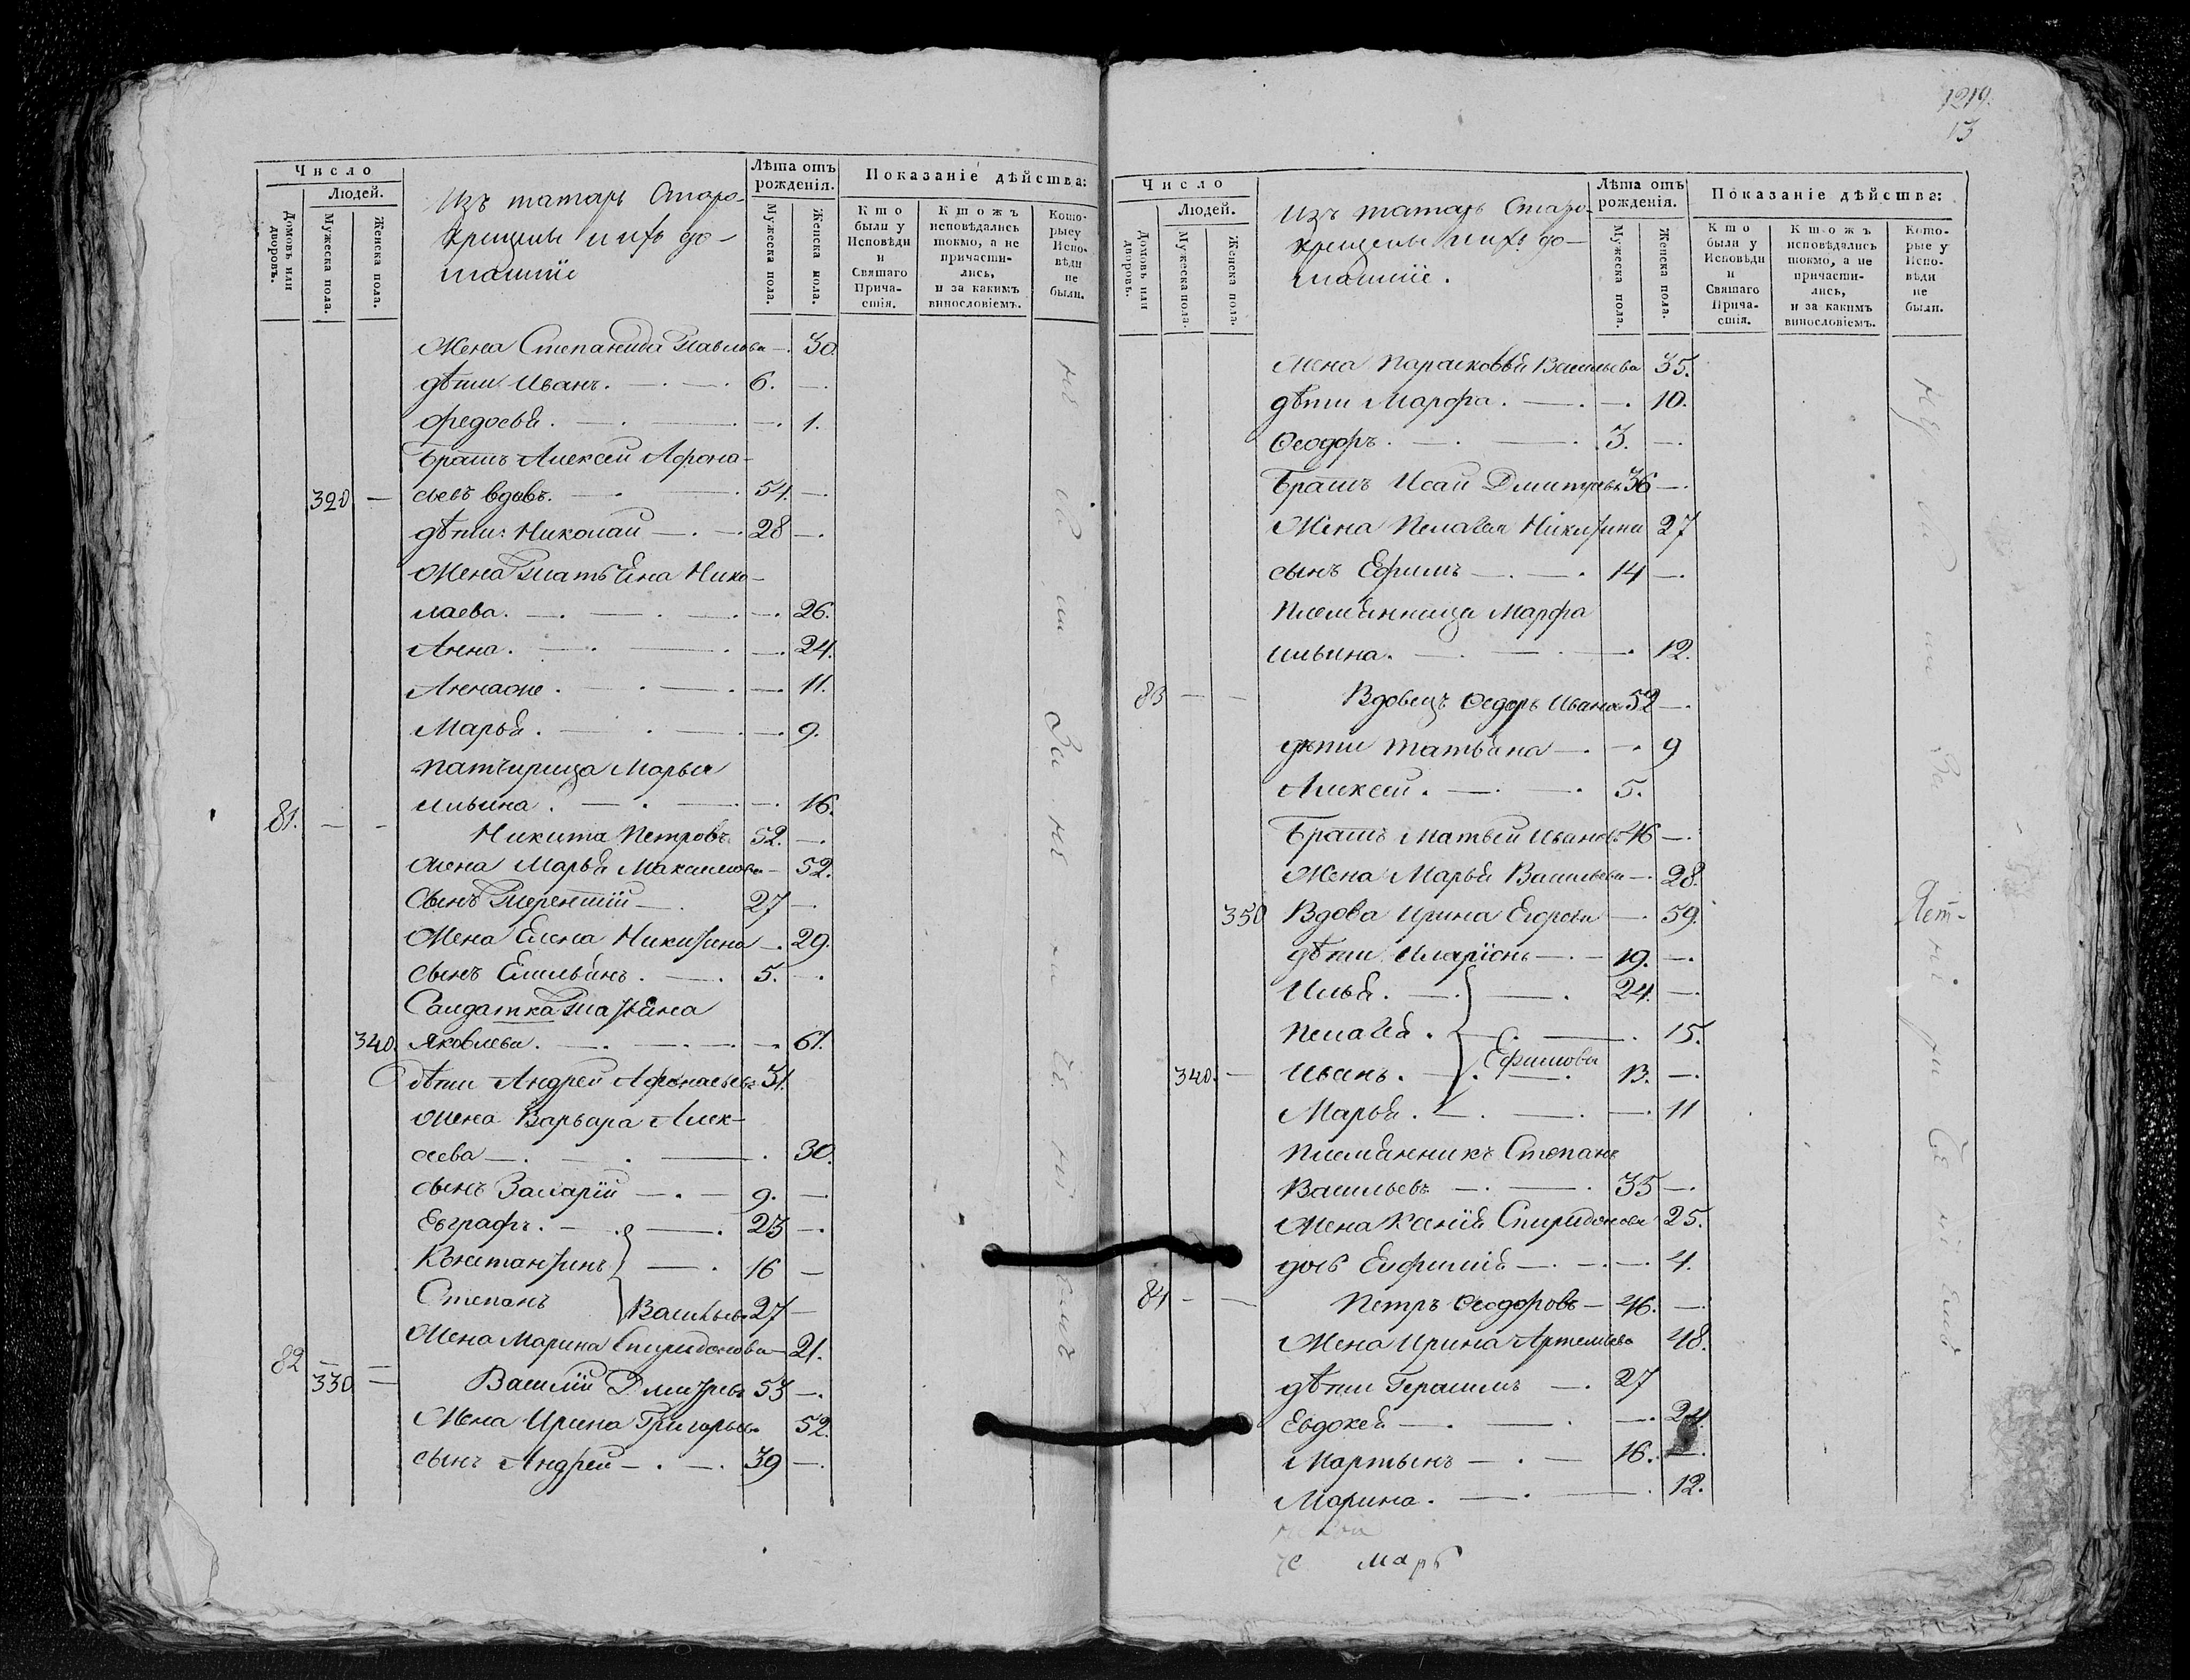 Число
Людей.
Домовъ или дворовъ.
Мужеска пола.
Женска пола.
Изъ татаръ Старо-
крещены и ихъ до-
машніе
Лѣта отъ рожденія.
Мужеска пола.
Женска пола.
Показаніе дѣйства:
Кто были у Исповѣди и Святаго Причастія.
Ктожъ исповѣдались токмо, а не причастились, и за какимъ винословіемъ.
Которые у Исповѣди не были.
Жена Степанида Павлова —. 30.
дѣти Иванъ. —. —. 6. —.
Федосья. —. —. —. 1.
Братъ Алексѣй Афона-
320 — сьевъ вдовъ. —. —. 54. —.
дѣти: Николай —. —. 28 —.
Жена Татьяна Нико-
лаева. —. —. —. —. 26.
Анна. —. —. —. 24.
—. —. —. 11.
Марья. —. —. —. 9.
патчирица Марья
ильина. —. —. —. 16.
81. — — Никита Петровъ 52. —.
Жена Марья Максимова — 52.
Сынъ Терентій —. 27 —.
Жена Елена Никитина —. 29.
сынъ Емельянъ. —. 5. —.
Салдатка Татьяна
340. Яковлева. —. —. —. —. 61.
дѣти Андрей Афонасьевъ 31.
Жена Варвара Алек-
сеева —. —. —. 30.
сынъ —. — 9. —.
Евграфъ. —. —. 23 —.
Константинъ —. 16 —
Степанъ Васильевы 27 —
Жена Марина Спиридонова — 21.
82 — 330 — Василій Дмитревъ 53 —.
Жена Ирина Григорьева 52.
сынъ Андрей —. —. 39 —.
1219.
13
Число
Людей.
Домовъ или дворовъ.
Мужеска пола.
Женска пола.
Изъ татаръ Старо-
крещены и ихъ до-
машніе.
Лѣта отъ рожденія.
Мужеска пола.
Женска пола.
Показаніе дѣйства:
Кто были у Исповѣди и Святаго Причастія.
Ктожъ исповѣдались токмо, а не причастились, и за какимъ винословіемъ.
Которые у Исповѣди не были.
Жена Парасковья Васильева 35.
дѣти Марфа. —. —. 10.
Ѳеодоръ. —. —. 3. —.
Братъ Исай Дмитревъ 36 —.
Жена Пелагея Никитина 27
сынъ Ефимъ —. —. 14 —.
племянница Марфа
ильина. —. —. —. 12.
83 — — Вдовецъ Ѳедоръ Ивановъ 52 —.
дѣти Татьяна —. —. 9
Алексѣй. —. —. 5.
Братъ Матвѣй Ивановъ 46 —.
Жена Марья Васильева —. 28.
350 Вдова Ирина Егорова —. 59.
дѣти Иларіонъ —. — 19. —.
Илья. —. —. 24. —.
Пелагея. —. —. 15.
340. — Иванъ. —. Ефимовы —. 13. —.
Марья. —. —. —. 11
племянникъ Степанъ
Васильевъ —. —. 35 —.
Жена Ксенія Спиридонова 25.
дочь Евфимія —. —. —. 4.
84 — — Петръ Ѳеодоровъ — 46. —.
Жена Ирина Артемьева 48.
дѣти Герасимъ —. 27
Евдокея —. —. —. 24.
Мартынъ —. — 16. —.
Марина. —. —. 12.
марь